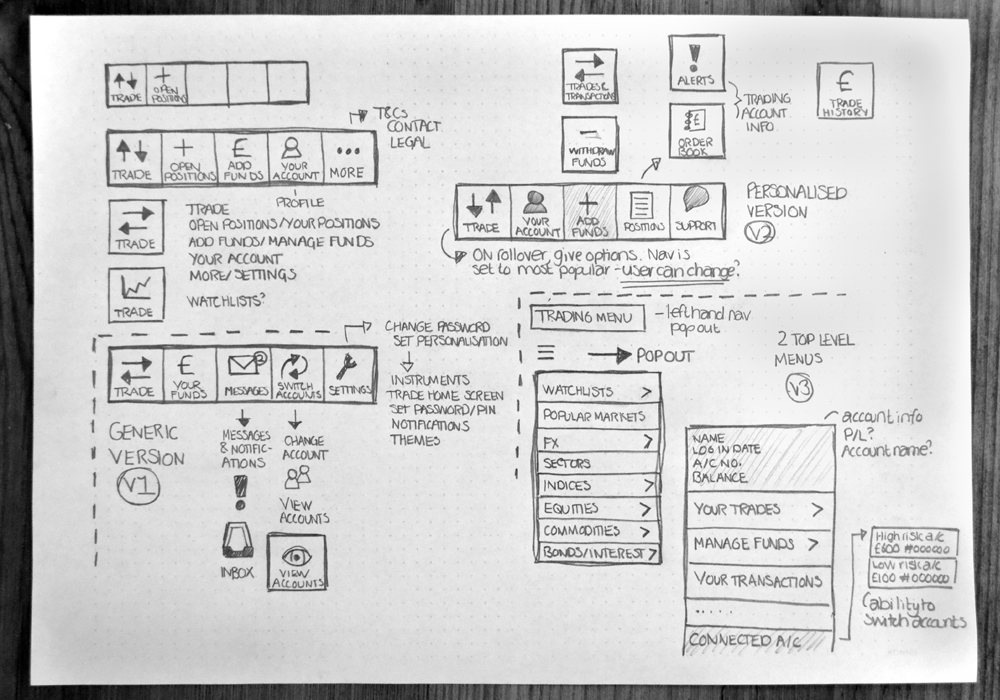 TRADE
OPEN
POSITIONS
T&CS
CONTACT
LEGAL
TRADE
+
OPEN
POSITIONS
£
ADD
FUNDS
YOUR
ACCOUNT
...
MORE
PROFILE
TRADE
TRADE
OPEN POSITIONS/YOUR POSITIONS
ADD FUNDS/MANAGE FUNDS
YOUR ACCOUNT
MORE/SETTINGS
TRADE
WATCHLISTS?
CHANGE PASSWORD
SET PERSONALISATION
INSTRUMENTS
TRADE HOME SCREEN
SET PASSWORD/PIN
NOTIFICATIONS
THEMES
TRADE
£
YOUR
FUNDS
MESSAGES
SWITCH
ACCOUNTS
SETTINGS
GENERIC
VERSION
V1
MESSAGES
& NOTIFIC-
ATIONS
!
INBOX
CHANGE
ACCOUNT
VIEW
ACCOUNTS
VIEW
ACCOUNTS
TRADES &
TRANSACTIONS
!
ALERTS
WITHDRAW
FUNDS
£
ORDER
BOOK
TRADING
ACCOUNT
INFO
£
TRADE
HISTORY
TRADE
YOUR
ACCOUNT
+
ADD
FUNDS
POSITIONS
SUPPORT
PERSONALISED
VERSION
V2
On rollover, give options. Nav is
set to most popular - user can change?
TRADING MENU
- left hand nav
pop out
POPOUT
WATCHLISTS >
POPULAR MARKETS
FX >
SECTORS
INDICES >
EQUITIES >
COMMODITIES >
BONDS/INTEREST >
2 TOP LEVEL
MENUS
V3
account info
P/L?
Account name?
NAME
LOG IN DATE
A/C NO.
BALANCE
YOUR TRADES >
MANAGE FUNDS >
YOUR TRANSACTIONS
.....
CONNECTED A/C
High risk a/c
£600 #000000
Low risk a/c
£100 #000000
(ability to
switch accounts